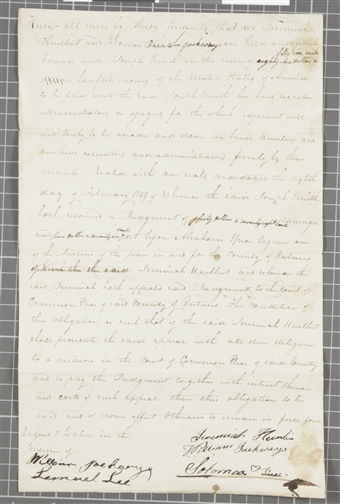 Know all men by these presents that we Jeremiah
Hurlbut and Solomon are held
bound unto Joseph Smith in the sum of eighty one dollars
lawful money of the United States of America
to be paid unto the said Joseph Smith his heirs executors
administrators or assigns for the which payment well
and truly to be made and done we bind ourselves and
our heirs executors and administrators firmly by these
presents Sealed with our seals and dated the eighth
day of February 1819 Whereas the said Joseph Smith
hath recovered a Judgment of dollars damages
and cost before Abraham Spear Esquire one
of the Justices of the peace in and for the County of Ontario
the said Jeremiah Hurlbut and whereas the
said Jeremiah hath appealed said Judgment to the Court of
Common Pleas of said County of Ontario The condition of
this obligation is such that if the said Jeremiah Hurlbut
shall prosecute the said appeal with all due diligence
to a decision in the Court of Common Pleas of said County
and to pay the Judgment together with interest thereon
and costs if such appeal then this obligation to be
void and of none effect otherwise to remain in full force
Signed & Sealed in the
Jeremiah
William Jackways
Solomon
William Jackways
Lemuel Lee